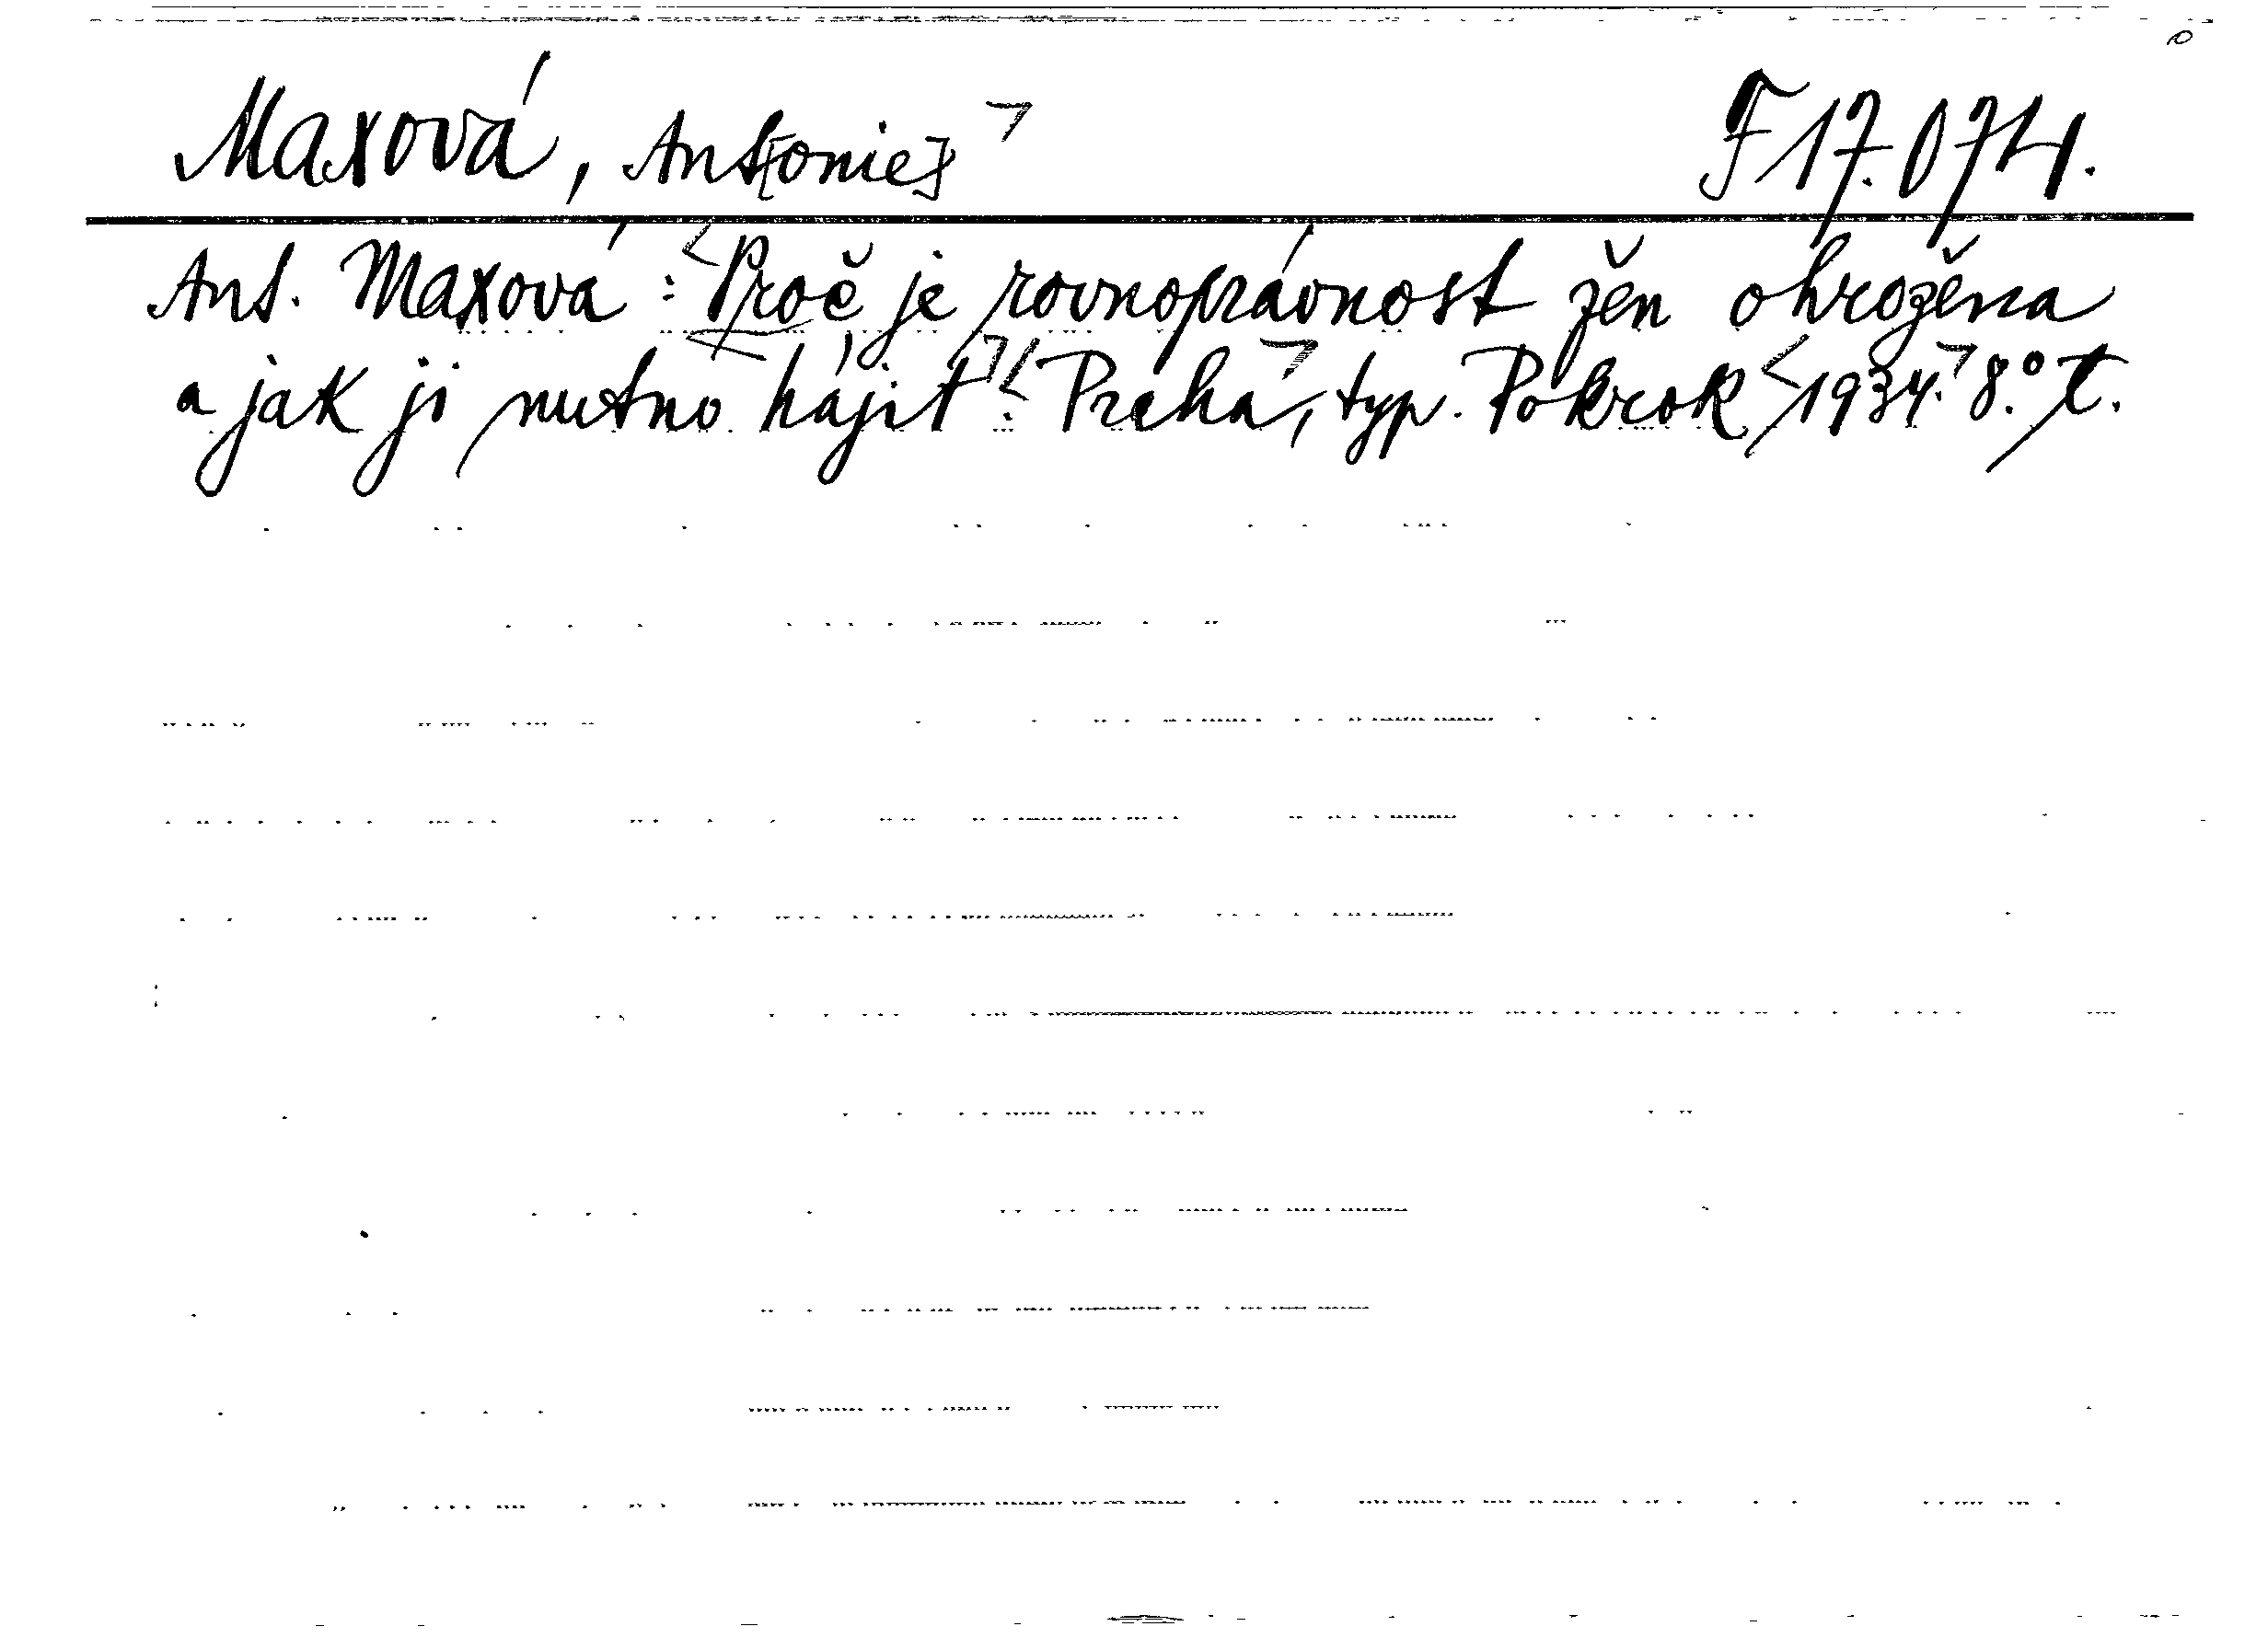 Maxová, Ant[onie] F 17.074.
Ant. Maxová: Proč je rovnoprávnost žen ohrožena
a jak ji nutno hájit. Praha, typ. Pokrok 1934. 8.° T.